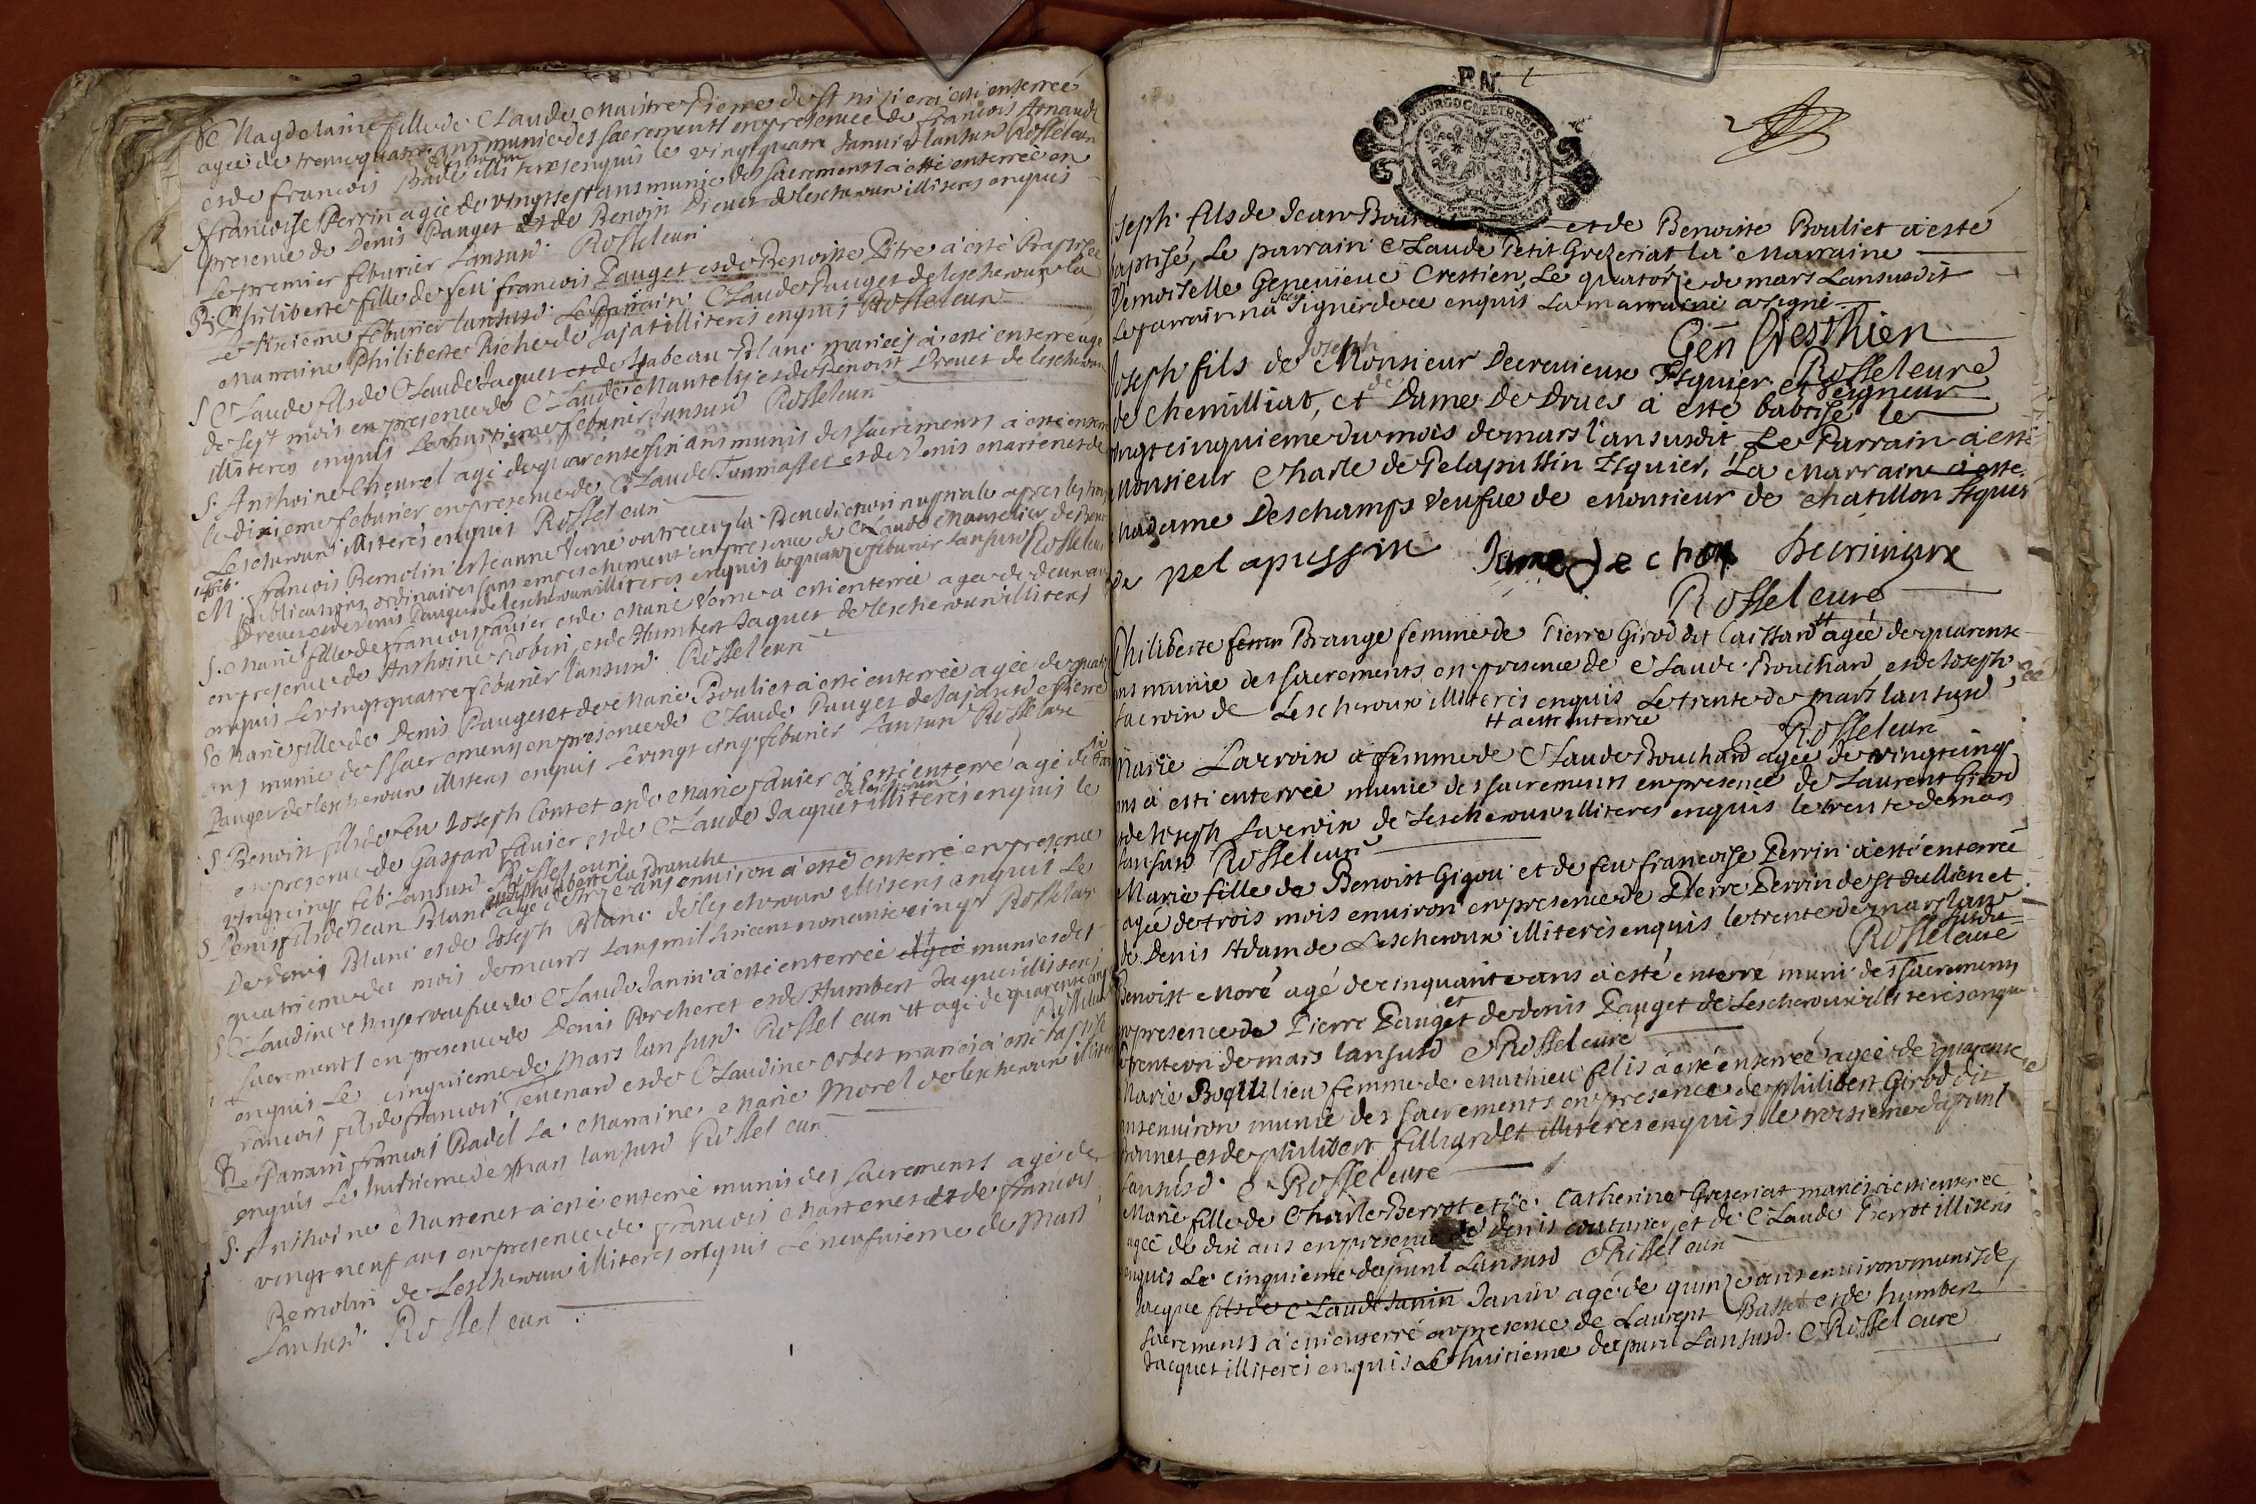 Se Magdelaine fille de Claude Maistre Pierre de St nizier a esté enterreé
ageé de trente quatre ans munie des sacrements en presence de francois Arnaud
et de francois Badel illiteres enquis le vingt quatre Januier lansusd Rosselcure
S francoise Perrin agée de vingt sept ans munie des sacrements a esté enterrée en
presence de Denis Pauget et de Benoin Dreuet de lescheroux illiteres enquis
le premier feburier lansusd. Rosselcure
B Philiberte fille de feu francois Pauget et de Benoiste Pitre a esté Baptisée
le sixieme feburier lansusd. Le Parrain Claude Pauget de lescheroux la
Marraine Philiberte Riche de Jajat illiteres enquis Rosselcure
S Claude fils de Claude Jaquet et de Isabeau Blanc mariés a esté enterré agé
de sept mois en presence de Claude Mantelier et de Benoit Dreuet de lescheroux
illiteres enquis le huitieme feburier lansusd Rosselcure
S. Anthoine Cheurel agé de quarente six ans munis des sacrements a esté enterré
le dixieme feburier en presence de Claude Tommasset et de Denis Martenet de
Lescheroux illiteres enquis Rosselcure
M francois Remolin et Jeanne Verne ont receu la Benediction nuptiale apres les trois
publications ordinaires sans empeschement en presence de Claude Mantelier de Benoit
Dreuet et denis Pauget de lescheroux illiteres enquis le quinze feburier lansusd Rosselcure
S. Marie fille de francois fauier et de Marie Verne a esté enterrée agée de deux ans
en presence de Anthoine Robin et de Humbert Jaquet de lescheroux illiteres
enquis le vingt quatre feburier lansusd. Rosselcure
Se Marie fille de Denis Pauget et de Marie Bouliet a esté enterrée agée de quatre
ans munie des sacrements en presence de Claude Pauget de Jajat et de Pierre
Pauget de lescheroux illiteres enquis le vingt cinq feburier lansusd Rosselcure
S Benoin fils de feu Joseph Contet et de Marie fauier a esté enterré agé de six ans
en presence de Gaspard fauier et de Claude Jacquet de lescheroux illiteres enquis le
vingt cinq feb. lansusd Rosselcure
S Denis fils de Jean Blanc et de philiberte la Branche agé de treze ans enuiron a esté enterré en presence
De denis Blanc et de Joseph Blanc de lescheroux illiteres enquis Le
quatrieme du mois de mars lan mil six cent nonante cinq Rosselcure
S Claudine Muger veufue de Claude Janin a esté enterrée agée munie des
sacrements en presence de Denis Porcheret et de Humbert Jaquet illiteres
enquis Le cinquieme de Mars lansusd. Rosselcure agé de quarente cinq
francois fils de francois Teuenard et de Claudine Orset mariés a esté baptisé
B Le Parrain francois Badel La Marraine Marie Morel de lescheroux illiteres
enquis Le huitieme de Mars lansusd Rosselcure
S. Anthoine Martenet a esté enterré munis des sacrements agé de
vingt neuf ans en presence de francois Martenet et de francois
Remolin de Lescheroux illiteres enquis Le neufuieme de Mars
Lansusd. Rosselcure
P.N.
Joseph fils de Jean et de Benoiste Bouliet a esté
baptisé, Le parrain Claude Petit Grezeriat La Marraine
Demoiselle Geneuieue Crestien, Le quatorze de mars Lansusdit
Le parrain n'a sceu signer de ce enquis La marraine a signé
Gen Crestien
Rosselcure
Joseph fils de Joseph Monsieur Decreuieux Esquier et Seigneur
de Chemilliat, et Dame De Drués a esté babtisé le
vingtcinquieme du mois de mars l'an susdit Le Parrain a esté
Monsieur Charle de Pelapussin Esquier, La Marraine a esté
Madame Deschamps veufue de Monsieur de Chatillon Esquier
de pelapussin Decreuieux
Rosselcure
Philiberte Brange femme de Pierre Girod dit Caissard agée de quarente
ans munie des sacrements en presence de Claude Bouchard et de Joseph
Lacroix de Lescheroux illiteres enquis Le trente de mars lansusd
a esté enterrée
Rosselcure
Marie Lacroix femme de Claude Bouchard agée de vingt cinq
ans a esté enterrée munie des sacrements en presence de Laurent Girod
et de Joseph Lacroix de Lescheroux illiteres enquis le trente de mars
lansusd Rosselcure
Marie fille de Benoist Gigou et de feu francoise Perrin a esté enterrée
agé de trois mois enuiron en presence de Pierre Perrin de St Jullien et
de Denis Adam de Lescheroux illiteres enquis le trente de mars lan
susdit
Rosselcure
Benoist Moré agé de cinquante ans a esté enterré muni des sacrements
en presence de Pierre Pauget et de denis Pauget de Lescheroux illiteres enquis
le trente un de mars lansusd Rosselcure
Marie femme de Mathieu felis a esté enterreé ageé de quarente
ans enuiron munie des sacrements en presence de philibert Girod dit
bonnet et de philibert filliardet illiteres enquis le troisieme dapuril
lansusd. Rosselcure
Marie fille de Charle Perrot et de Catherine Greseriat mariés a esté enterreé
ageé de dix ans en presence de denis couturier et de Claude Perrot illiteres
enquis Le cinquieme dapuril Lansusd Rosselcure
Jacque fils de Claude Janin Janin agé de quinze ans enuiron munis des
sacrements a esté enterré en presence de Laurent Basset et de humbert
Jacquet illiteres enquis Le huitieme dapuril Lansusd. Rosselcure